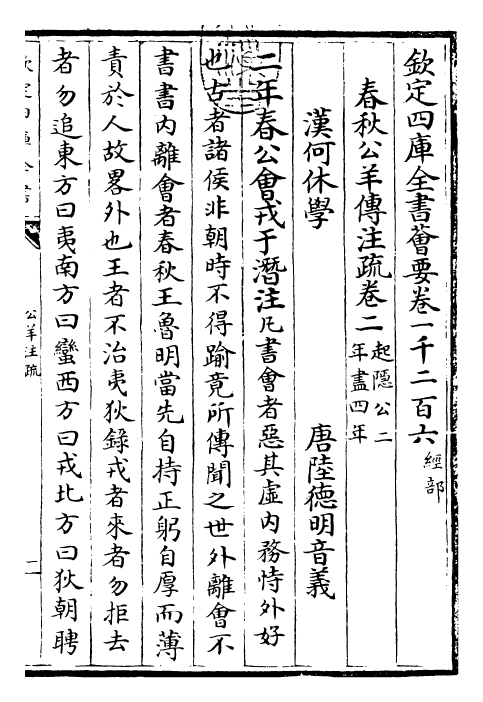 欽定四庫全書薈要卷一千二百六 經部
春秋公羊傳注疏卷二 起隱公二年盡四年
漢何休學 唐陸德明音義
二年春公會戎于潛注凡書會者惡其虛內務恃外好
也古者諸侯非朝時不得踰竟所傳聞之世外離會不
書書內離會者春秋王魯明當先自持正躬自厚而薄
責於人故畧外也王者不治夷狄錄戎者來者勿拒去
者勿追東方曰夷南方曰蠻西方曰戎北方曰狄朝聘
公羊注疏